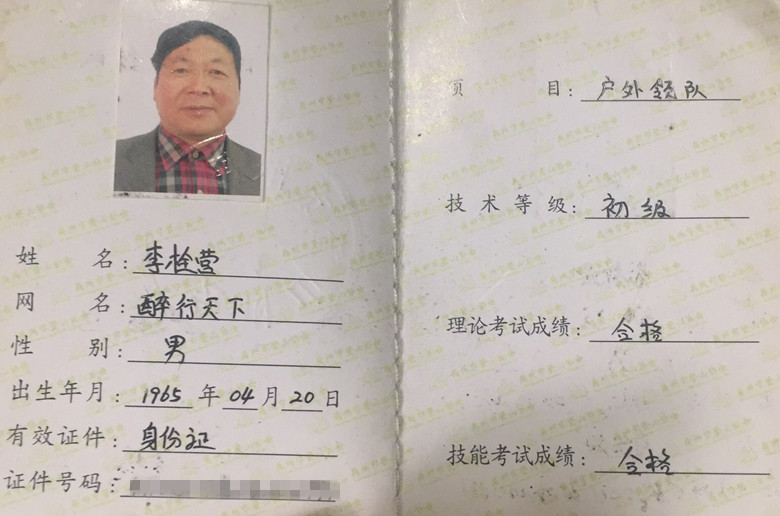 姓名：李栓营
网名：醉行天下
性别：男
出生年月：1965年04月20日
有效证件：身份证
证件号码：
项目：户外领队
技术等级：初级
理论考试成绩：合格
技能考试成绩：合格